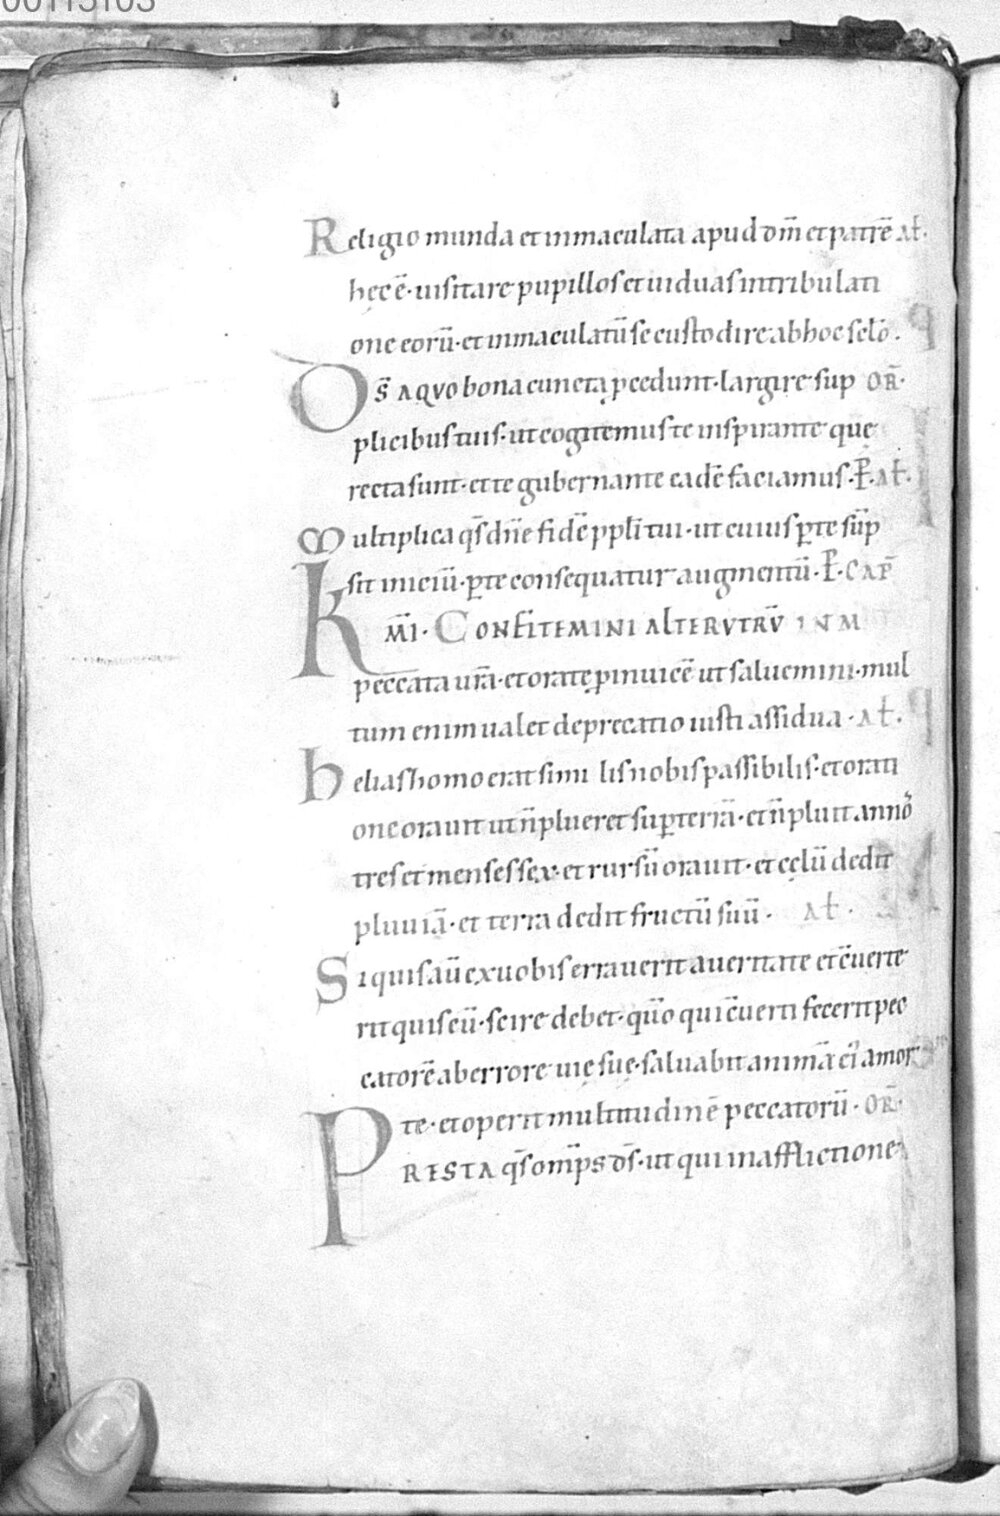 00113103
Religio munda et inmaculata apud dm̄ et patrē al̄.
hęc ē· uisitare pupillos et uiduas in tribulati
one eorū· et inmaculatū se custodire ab hoc sclō.
D s̄ A QVO bona cuncta ꝓcedunt· largire sup OR̄·
plicibus tuis· ut cogitemus te inspirante que
recta sunt· et te gubernante eadē faciamus· P̄· al̄·
Multiplica q̄s dn̄e fidē ppli tui· ut cuius ꝑ te sūp
sit iniciū· ꝑ te consequatur augmentū· P̄· CAP̄
K M̄I· CONFITEMINI ALTERVTRV̄
peccata ur̄a· et orate ꝓ inuicē ut saluemini· mul
tum enim ualet deprecatio iusti assidua· al̄·
helias homo erat similis nobis passibilis· et orati
one orauit ut n̄ plueret suꝑ terrā· et n̄ pluit anno
tres et menses sex· et rursū orauit· et cęlū dedit
pluuiā· et terra dedit fructū suū· al̄·
Si quis aū ex uobis errauerit a ueritate et c̄uerte
rit quis eū· scire debet· qm̄o qui c̄uerti fecerit pec
catorē ab errore uię suę· saluabit animā ei' a mor
te· et operit multitudinē peccatorū· OR̄·
PRESTA q̄s om̄ps d̄s· ut qui in afflictione